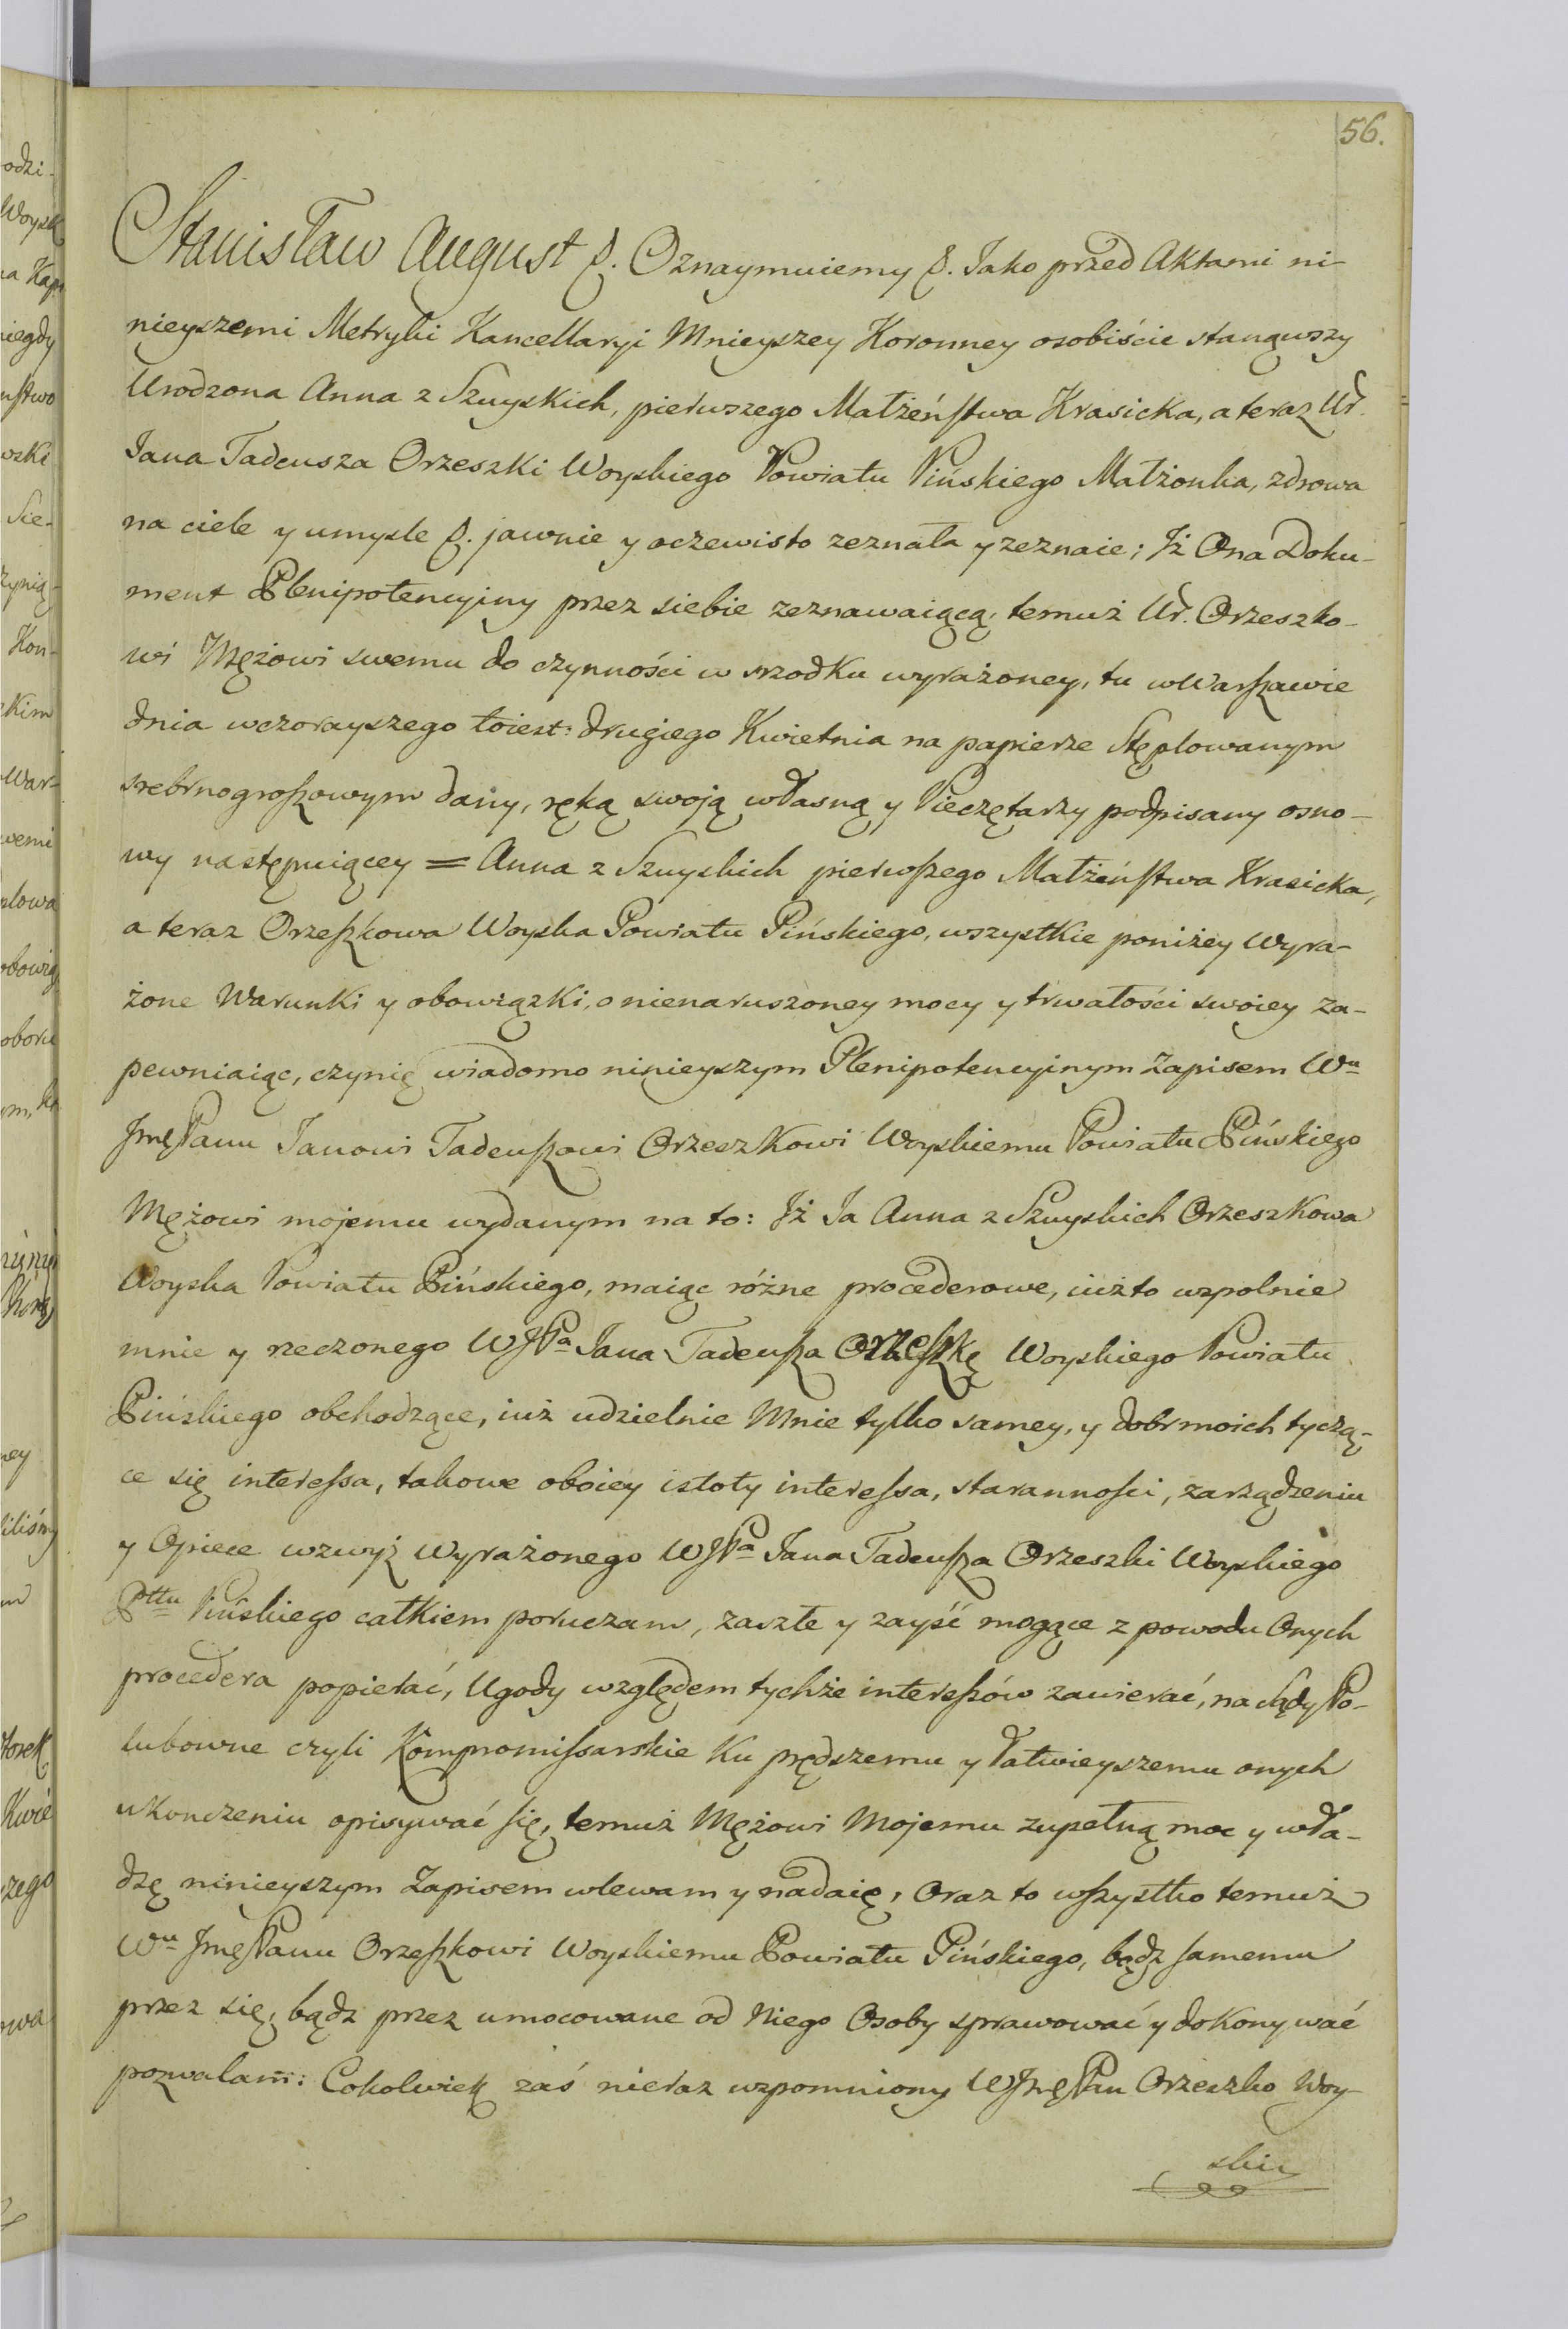 56.
Stanisław August &. Oznaymuiemy &. Jako przed Aktami ni-
nieyszemi Metryki Kancellaryi Mnieyszey Koronney osobiście stanąwszy
Urodzona Anna z Szuyskich, pierwszego Małżeństwa Krasicka, a teraz Ur.
Jana Tadeusza Orzeszki Woyskiego Powiatu Pińskiego Małżonka, zdrowa
na ciele y umysle &. jawnie y oczewisto zeznała y zeznaie; Iż Ona Doku-
ment Plenipotencyiny przez siebie zeznawaiącą, temuż Ur. Orzeszko-
wi Mężowi swemu do czynności w srzodku wyrażoney, tu w Warszawie
dnia wczorayszego toiest: drugiego Kwietnia na papierze Stęplowanym
srebrnogroszowym dany, ręką swoją własną y Pieczętarzy podpisany osno-
wy następuiącey = Anna z Szuyskich pierwszego Małżeństwa Krasicka,
a teraz Orzeszkowa Woyska Powiatu Pińskiego, wszystkie poniżey wyra-
żone Warunki y obowiązki, o nienaruszoney mocy y trwałości swoiey za-
pewniaiąc, czynię wiadomo ninieyszym Plenipotencyinym Zapisem Wu
JmęPanu Janowi Tadeuszowi Orzeszkowi Woyskiemu Powiatu Pińskiego
Mężowi mojemu wydanym na to: Iż Ja Anna z Szuyskich Orzeszkowa
Woyska Powiatu Pińskiego, maiąc różne procederowe, iużto wspolnie
mnie y rzeczonego WJPa Jana Tadeusza Orzeszkę Woyskiego Powiatu
Pińskiego obchodzące, iuż udzielnie Mnie tylko samey, y dobr moich tyczą-
ce się interessa, takowe oboiey istoty interessa, starannosci, zarządzeniu
y Opiece wzwyż wyrażonego WJPa Jana Tadeusza Orzeszki Woyskiego
Pttu Pińskiego całkiem poruczam, zaszłe y zayść mogące z powodu Onych
procedera popierać, Ugody względem tychże interessów zawierać, na Sądy Po-
lubowne czyli Kompromissarskie Ku prędszemu y łatwieyszemu onych
ukonczeniu opisywać się, temuż Mężowi Mojemu zupełną moc y wła-
dzę ninieyszym Zapisem wlewam y nadaię, Oraz to wszystko temuż
Wu JmęPanu Orzeszkowi Woyskiemu Powiatu Pińskiego, bądz samemu
przez się, bądz przez umocowane od Niego Osoby sprawować y dokonywać
pozwalam: Cokolwiek zaś nieraz wzpomniony WJmęPan Orzeszko Woy-
ski